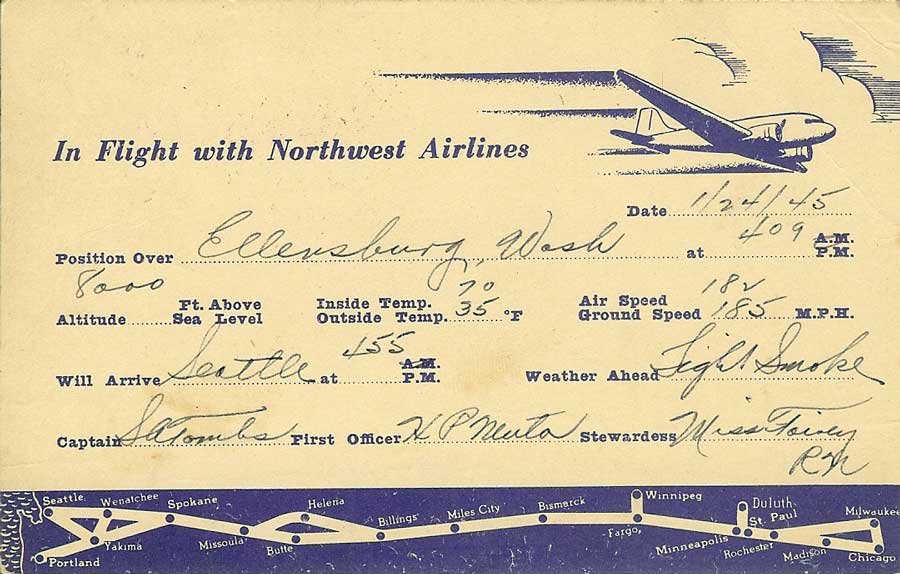 In Flight with Northwest Airlines
Date 1/24/45
Position Over Ellensburg, Wash at 409 A.M. P.M.
Altitude 8000 Ft. Above Sea Level Inside Temp. 70 Outside Temp. 35 °F Air Speed 182 Ground Speed 185 M.P.H.
Will Arrive Seattle at 455 A.M. P.M. Weather Ahead Light Smoke
Captain First Officer H P Stewardess Miss
RN
Seattle Wenatchee Spokane Helena Billings Miles City Bismarck Winnipeg Duluth St. Paul Milwaukee
Portland Yakima Missoula Butte Fargo, Minneapolis Rochester Madison Chicago